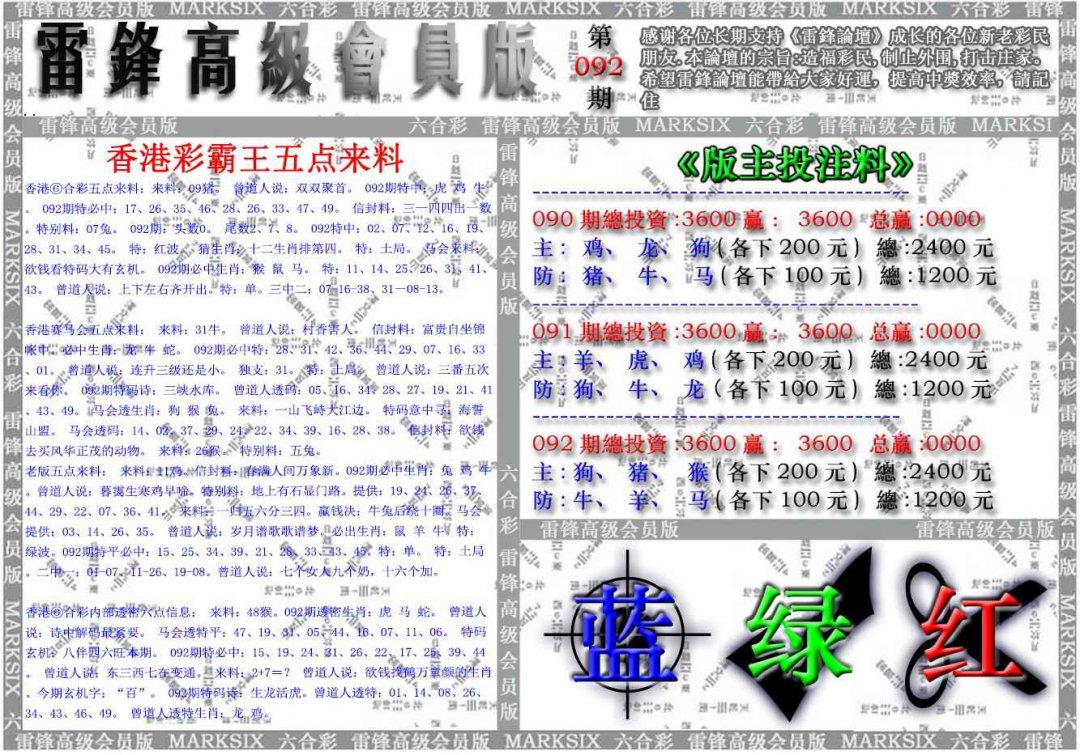 雷锋高级会员版 MARKSIX 六合彩 雷锋高级会员版 MARKSIX 六合彩 雷锋高级会员版 MARKSIX 六合彩 雷锋
雷鋒高級會員版
第
092
期
感谢各位长期支持《雷鋒論壇》成长的各位新老彩民
朋友.本論壇的宗旨:造福彩民,制止外围,打击庄家.
希望雷鋒論壇能帶給大家好運，提高中獎效率，請記
住
雷锋高级会员版 六合彩 雷锋高级会员版 MARKSIX 六合彩 雷锋高级会员版 MARKSI
香港彩霸王五点来料
香港⑥合彩五点来料：来料：09猪。 曾道人说：双双聚首。 092期特中：虎 鸡 牛
。 092期特必中：17、26、35、46、28、26、33、47、49。 信封料：三一四四出一数
。特别料：07兔。 092期：头数0。 尾数2、7、8。 092特中：02、07、12、16、19、
28、31、34、45。 特：红波。 猜生肖：十二生肖排第四。 特：土局。 马会来料：
欲钱看特码大有玄机。 092期必中生肖：猴 鼠 马。 特：11、14、25、26、31、41、
43。 曾道人说：上下左右齐开出。特：单。三中二：07-16-38、31-08-13。
香港赛马会五点来料： 来料：31牛。 曾道人说：村香害人。 信封料：富贵自坐锦
帐中。必中生肖：龙 牛 蛇。 092期必中特：28、31、42、36、44、29、07、16、33
、01。 曾道人说：连升三级还是小。 独支：31。 特：土局。 曾道人说：三番五次
来看你。 092期特码诗：三峡水库。 曾道人透码：05、16、34、28、27、19、21、41
、43、49。 马会透生肖：狗 猴 兔。 来料：一山飞峙大江边。 特码意中寻：海誓
山盟。 马会透码：14、02、37、29、24、22、34、39、16、28、38。 信封料：欲钱
去买风华正茂的动物。 来料：26猴。 特别料：五兔。
老版五点来料： 来料：11狗。信封料：春满人间万象新。092期必中生肖：兔 鸡 牛
。曾道人说：暮霭生寒鸡早啼。特别料：地上有石显门路。提供：19、24、26、37、
44、29、22、07、36、41。 来料：一归五六分三四。赢钱决：牛兔后绕十圈。马会
提供：03、14、26、35。 曾道人说：岁月谱歌歌谱梦。必出生肖：鼠 羊 牛 特：
绿波。092期特平必中：15、25、34、39、21、28、33、43、45。特：单。 特：土局
。二中一：01-07、11-26、19-08。曾道人说：七个女人九个奶，十六个加。
香港⑥合彩内部透密六点信息： 来料：48猴。092期透密生肖：虎 马 蛇。 曾道人
说：诗中解码最紧要。 马会透特平：47、19、31、05、44、16、07、11、06。 特码
玄机：八伴四六旺本期。 092期特必中：15、19、24、31、26、22、17、25、39、44
。 曾道人说：东三西七在变通。 来料：2+7=？ 曾道人说：欲钱找鹤万童颜的生肖
。今期玄机字：“百”。 092期特码诗：生龙活虎。曾道人透特：01、14、08、26、
34、43、46、49。 曾道人透特生肖：龙 鸡。
《版主投注料》
090期總投資:3600 贏： 3600 总赢:0000
主：鸡、龙、狗(各下200元) 總:2400元
防：猪、牛、马(各下100元) 總:1200元
091期總投資:3600 贏： 3600 总赢:0000
主：羊、虎、鸡(各下200元) 總:2400元
防：狗、牛、龙(各下100元) 總:1200元
092期總投資:3600 贏： 3600 总赢:0000
主：狗、猪、猴(各下200元) 總:2400元
防：牛、羊、马(各下100元) 總:1200元
雷锋高级会员版 雷锋高级会员版
蓝 绿 红
雷锋高级会员版 MARKSIX 六合彩 雷锋高级会员版 MARKSIX 六合彩 雷锋高级会员版 MARKSIX 六合彩 雷锋